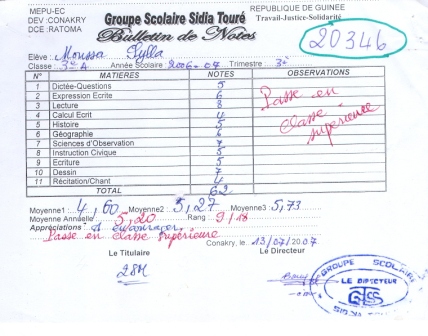 MEPU-EC
DEV :CONAKRY
DCE :RATOMA
Groupe Scolaire Sidia Touré
Bulletin de Notes
REPUBLIQUE DE GUINEE
Travail-Justice-Solidarité
20346
Elève : Moussa Sylla
Classe : 3è A Année Scolaire : 2006-07 Trimestre : 3è
N° MATIERES NOTES OBSERVATIONS
1 Dictée-Questions 5
2 Expression Ecrite 6
3 Lecture 8
4 Calcul Ecrit 4
5 Histoire 5
6 Géographie 6
7 Sciences d'Observation 7
8 Instruction Civique 5
9 Ecriture 5
10 Dessin 7
11 Récitation/Chant 4
TOTAL 62
Passe en
classe
supérieure
Moyenne1 : 4,60 Moyenne2 : 5,27 Moyenne3 : 5,73
Moyenne Annuelle : 5,20 Rang : 9/18
Appréciations : A encourager
Passe en classe supérieure
Conakry, le 13/07/2007
Le Titulaire Le Directeur
28M
GROUPE SCOLAIRE
LE DIRECTEUR